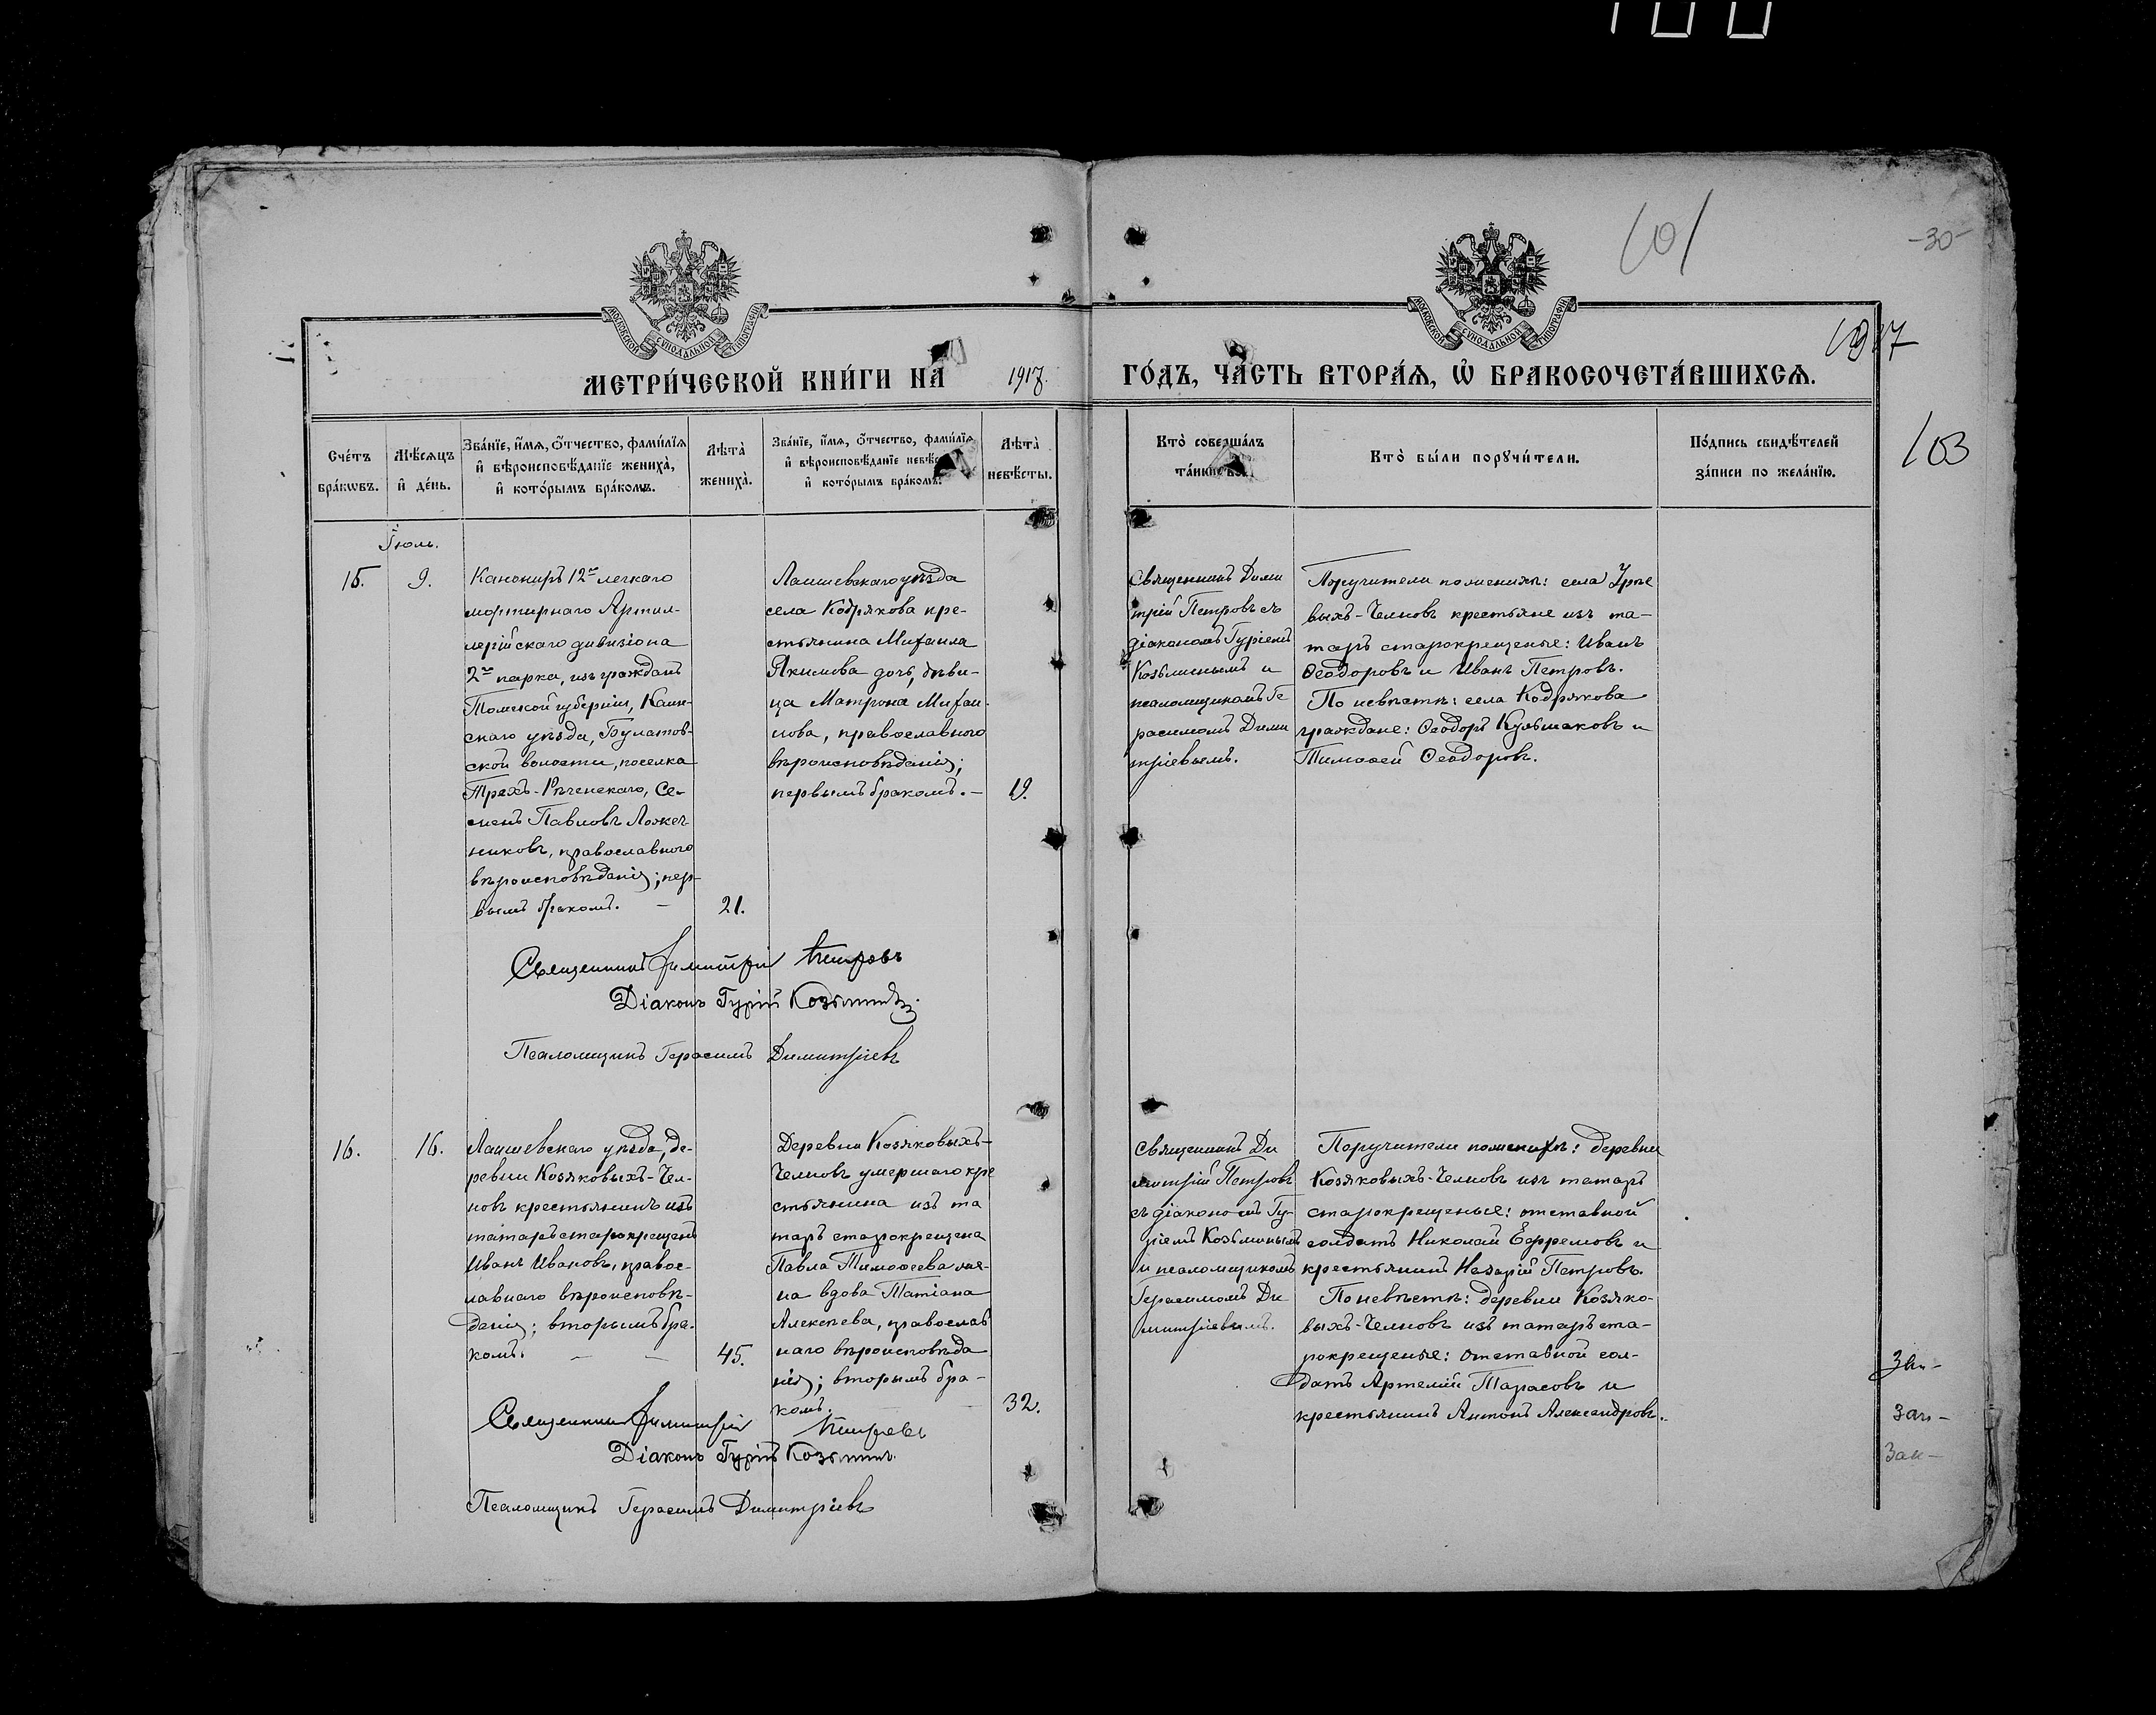 100
101
-30-
МОСКОВСКОЙ СУНОДАЛЬНОЙ ТИПОГРАФІИ
МОСКОВСКОЙ СУНОДАЛЬНОЙ ТИПОГРАФІИ
1917
МЕТРИ́ЧЕСКОЙ КНИ́ГИ НА 1917. ГО́ДЪ, ЧА́СТЬ ВТОРА́Я, Ѡ҆ БРАКОСОЧЕТА́ВШИХСЯ.
103
Сче́тъ
бра́кѡвъ.
Мѣ́сяцъ
и҆ де́нь.
Зва́нїе, и҆́мя, ѻ҆́тчество, фами́лїя
и҆ вѣроисповѣ́данїе жениха̀,
и҆ кото́рымъ бра́комъ.
Лѣта̀
жениха̀.
Зва́нїе, и҆́мя, ѻ҆́тчество, фами́лїя
и҆ вѣроисповѣ́данїе невѣ́с
и҆ кото́рымъ бра́комъ.
Лѣта̀
невѣ́сты.
Кто̀ соверша́лъ
та́инство.
Кто̀ бы́ли порꙋчи́тели.
По́дпись свидѣ́телей
за́писи по жела́нїю.
Іюль.
15.
9.
Канониръ 12го легкаго
мортирнаго Артил-
лерійскаго дивизіона
2го парка, изъ гражданъ
Томской губерніи, Каин-
скаго уѣзда, Булатов-
ской волости, поселка
Трехъ-Рѣченскаго, Се-
менъ Павловъ Ложеч-
никовъ, православнаго
вѣроисповѣданія; пер-
вымъ бракомъ. —
21.
Лаишевскаго уѣзда
села Кодрякова кре-
стьянина Михаила
Якимова дочь, дѣви-
ца Матрона Михаи-
лова, православнаго
вѣроисповѣданія;
первымъ бракомъ. —
19.
Священникъ Дими
трій Петровъ съ
діакономъ Гуріемъ
Козьминымъ и
псаломщикомъ Ге
расимомъ Дими
тріевымъ.
Поручители по женихѣ: села Урѣе
выхъ-Челновъ крестьяне изъ та-
таръ старокрещеные: Иванъ
Ѳеодоровъ и Иванъ Петровъ.
По невѣстѣ: села Кодрякова
граждане: Ѳеодоръ Кузьмаковъ и
Тимоѳей Ѳеодоровъ.
Священникъ Димитрій Петровъ
Діаконъ Гурій Козьминъ.
Псаломщикъ Герасимъ Димитріевъ
16.
16.
Лаишевскаго уѣзда, де-
ревни Козяковыхъ-Чел-
новъ крестьянинъ изъ
татаръ старокрещенъ
Иванъ Ивановъ, правос-
лавнаго вѣроисповѣ-
данія; вторымъ бра-
комъ. — —
45.
Деревни Козяковыхъ-
Челновъ умершаго кре
стьянина изъ та
таръ старокрещена
Павла Тимоѳеева же-
на вдова Татіана
Алексѣева, православ
наго вѣроисповѣда
нія; вторымъ бра-
комъ. — —
32.
Священникъ Ди
митрій Петровъ
съ діакономъ Гу-
ріемъ Козьминымъ
и псаломщикомъ
Герасимомъ Ди
митріевымъ.
Поручители по женихѣ: деревни
Козяковыхъ-Челновъ изъ татаръ
старокрещеные: отставной
солдатъ Николай Ефремовъ и
крестьянинъ Назарій Петровъ.
По невѣстѣ: деревни Козяко-
выхъ-Челновъ изъ татаръ ста-
рокрещеные: отставной сол-
датъ Артемій Тарасовъ и
крестьянинъ Антонъ Александровъ.
Священникъ Димитрій Петровъ
Діаконъ Гурій Козьминъ.
Псаломщикъ Герасимъ Димитріевъ